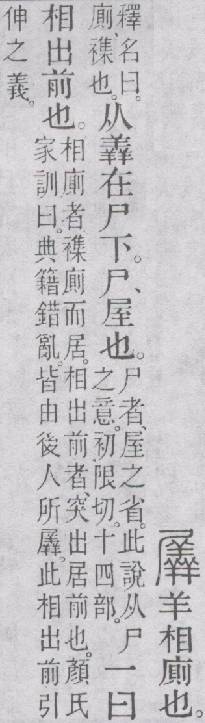 羼羊相廁也。
釋名曰。廁、襍也。从羴在尸下。尸、屋也。尸者、屋之省。此說从尸之意。初限切。十四部。一曰
相出前也。相廁者、襍廁而居。相出前者、突出居前也。顏氏家訓曰。典籍錯亂。皆由後人所羼。此相出前引
伸之義。